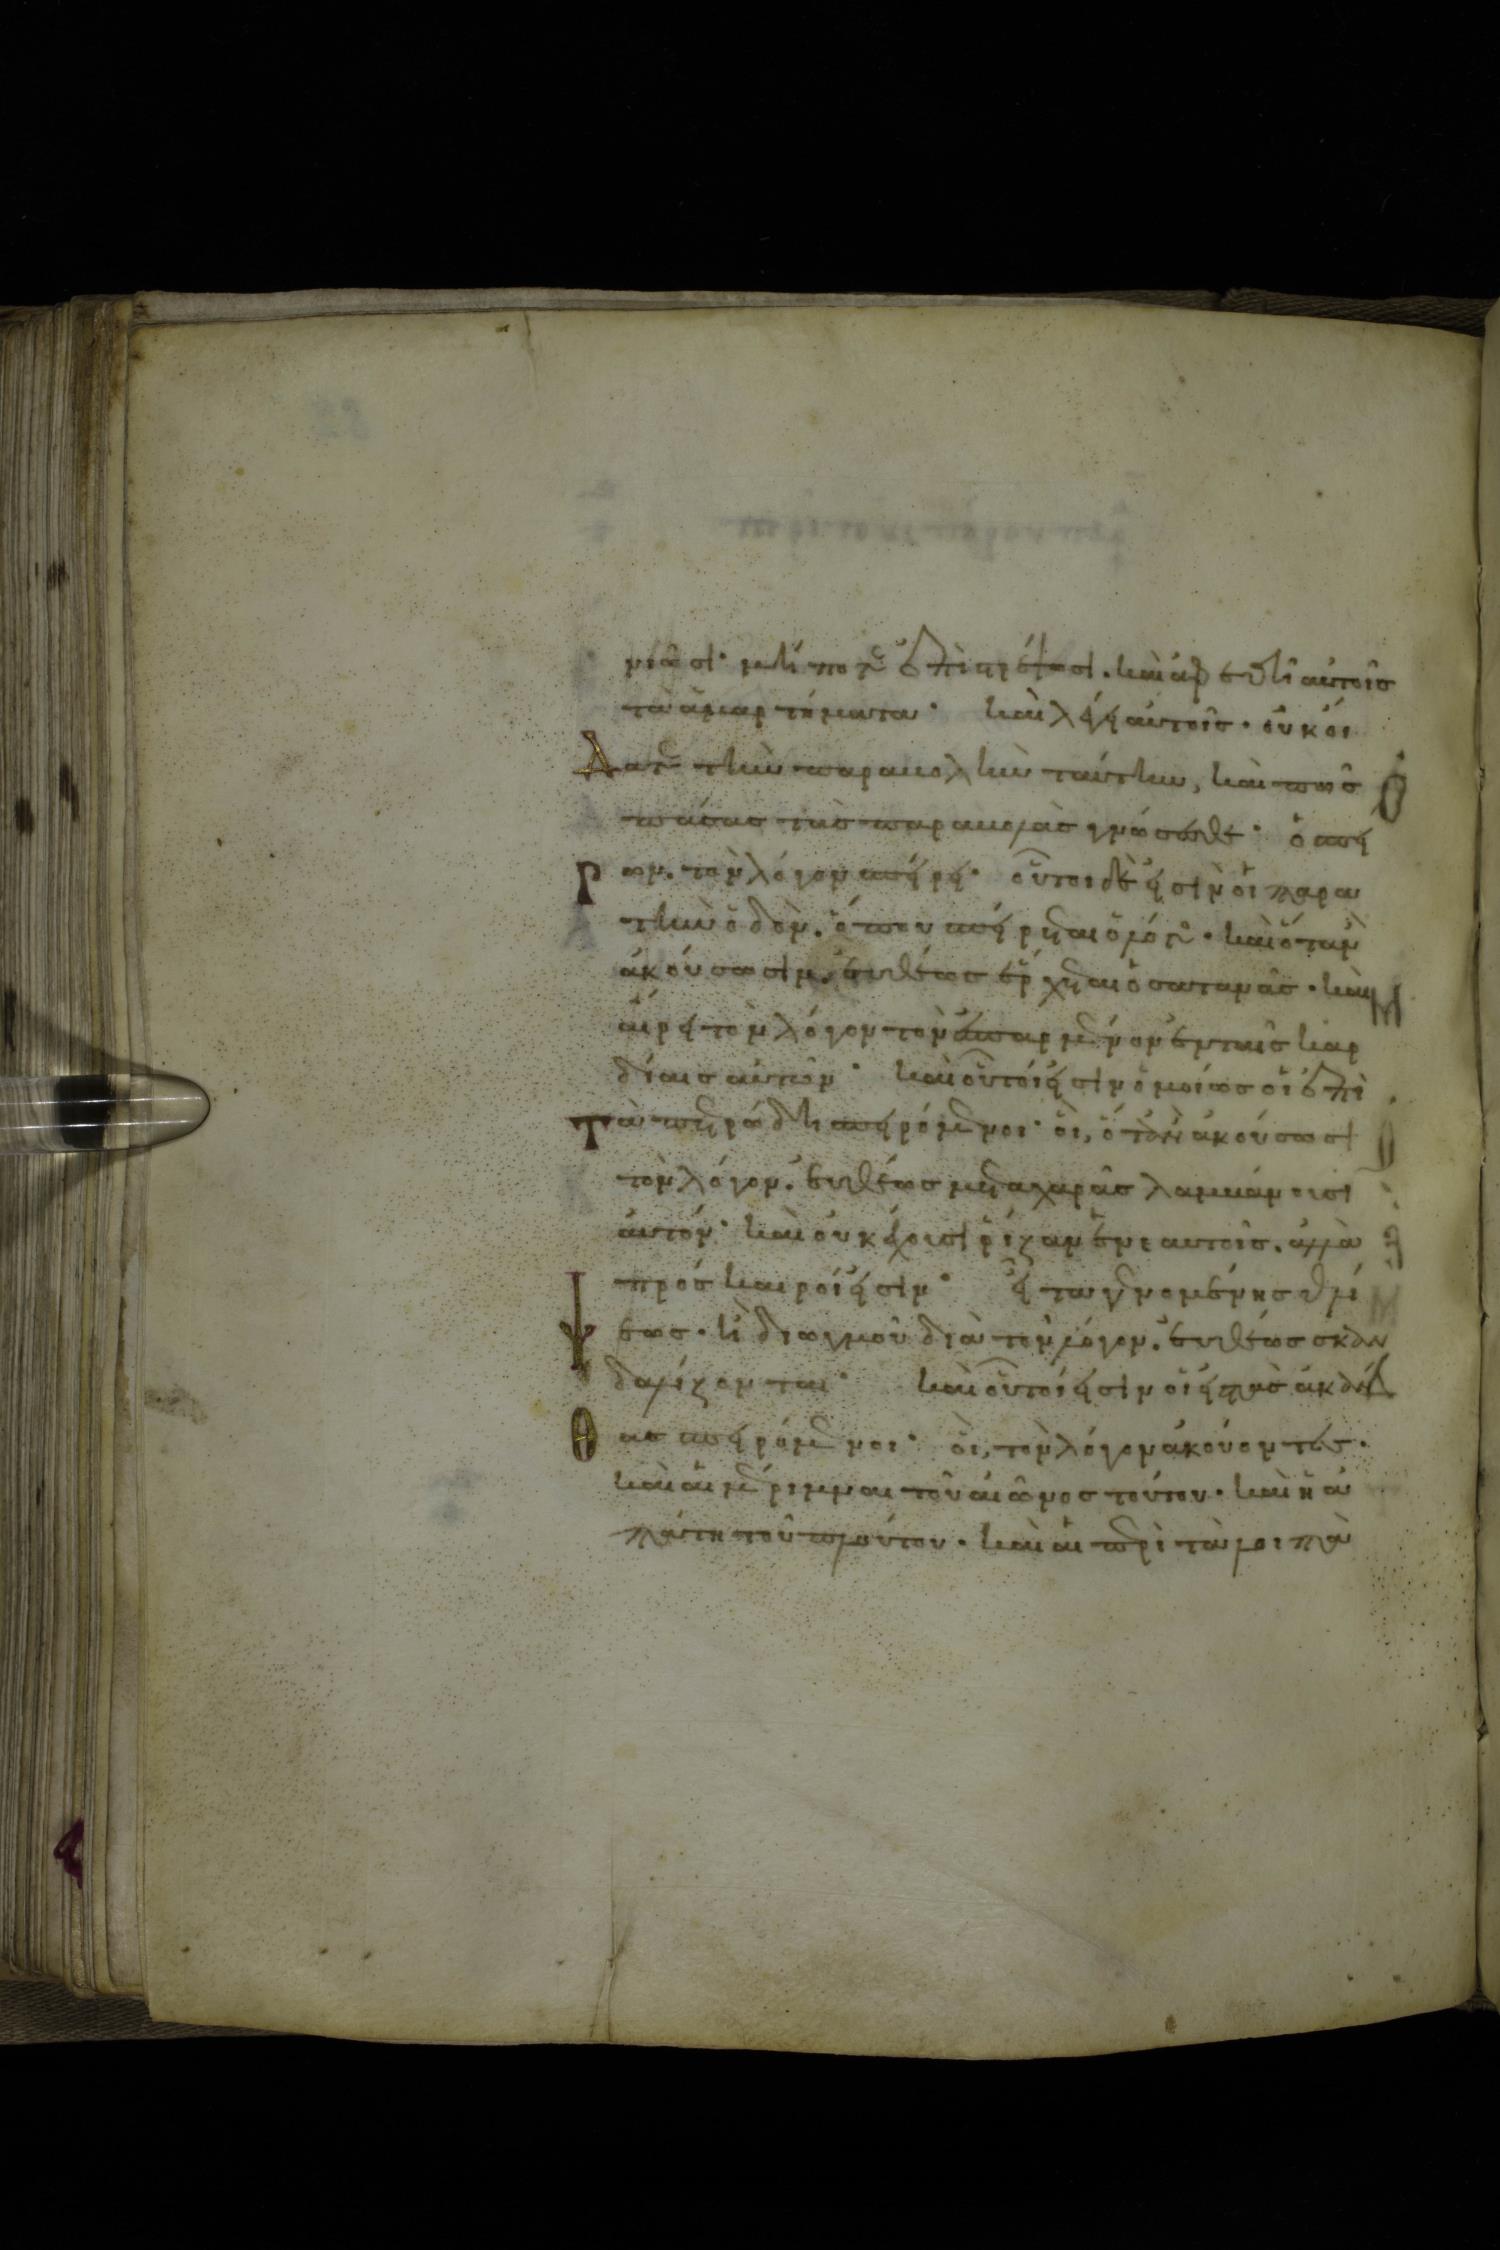 νιῶσι· μήποτε ἐπιστρέψωσι. καὶ ἀφεθῆ αὐτοῖς
τὰ ἁμαρτήματα· καὶ λέγει αὐτοῖς· οὐκ οἴ
δατε τὴν παραβολὴν ταύτην, καὶ πῶς
πάσας τὰς παραβολὰς γνώσεσθε· ὁ σπεί
ρων. τὸν λόγον σπείρει· οὗτοι δέ εἰσιν οἱ παρα
τὴν ὁδὸν. ὅπου σπείρεται ὁ λόγος. καὶ ὅταν
ἀκούσωσιν. εὐθέως ἔρχεται ὁ σατανᾶς. καὶ
αἴρει τὸν λόγον τὸν ἐσπαρμένον ἐν ταῖς καρ
δίαις αὐτῶν· καὶ οὗτοί εἰσιν ὁμοίως οἱ ἐπὶ
τὰ πετρώδη σπειρόμενοι· οἳ, ὅταν ἀκούσωσι
τὸν λόγον. εὐθέως μετα χαρᾶς λαμβάνουσι
αὐτόν· καὶ οὐκ ἔχουσι ῥίζαν ἐν ἑαυτοῖς. ἀλλὰ
πρόσκαιροί εἰσιν· εἶτα γενομένης θλί
ψεως. ἢ διωγμοῦ διὰ τὸν λόγον. εὐθέως σκαν
δαλίζονται· καὶ οὗτοί εἰσιν οἱ εἰς τὰς ἀκάν
θας σπειρόμενοι· οἳ, τὸν λόγον ἀκούοντες.
καὶ αἱ μέριμναι τοῦ αἰῶνος τούτου. καὶ ἡ ἀ
πάτη τοῦ πλούτου. καὶ αἱ περὶ τὰ λοιπὰ